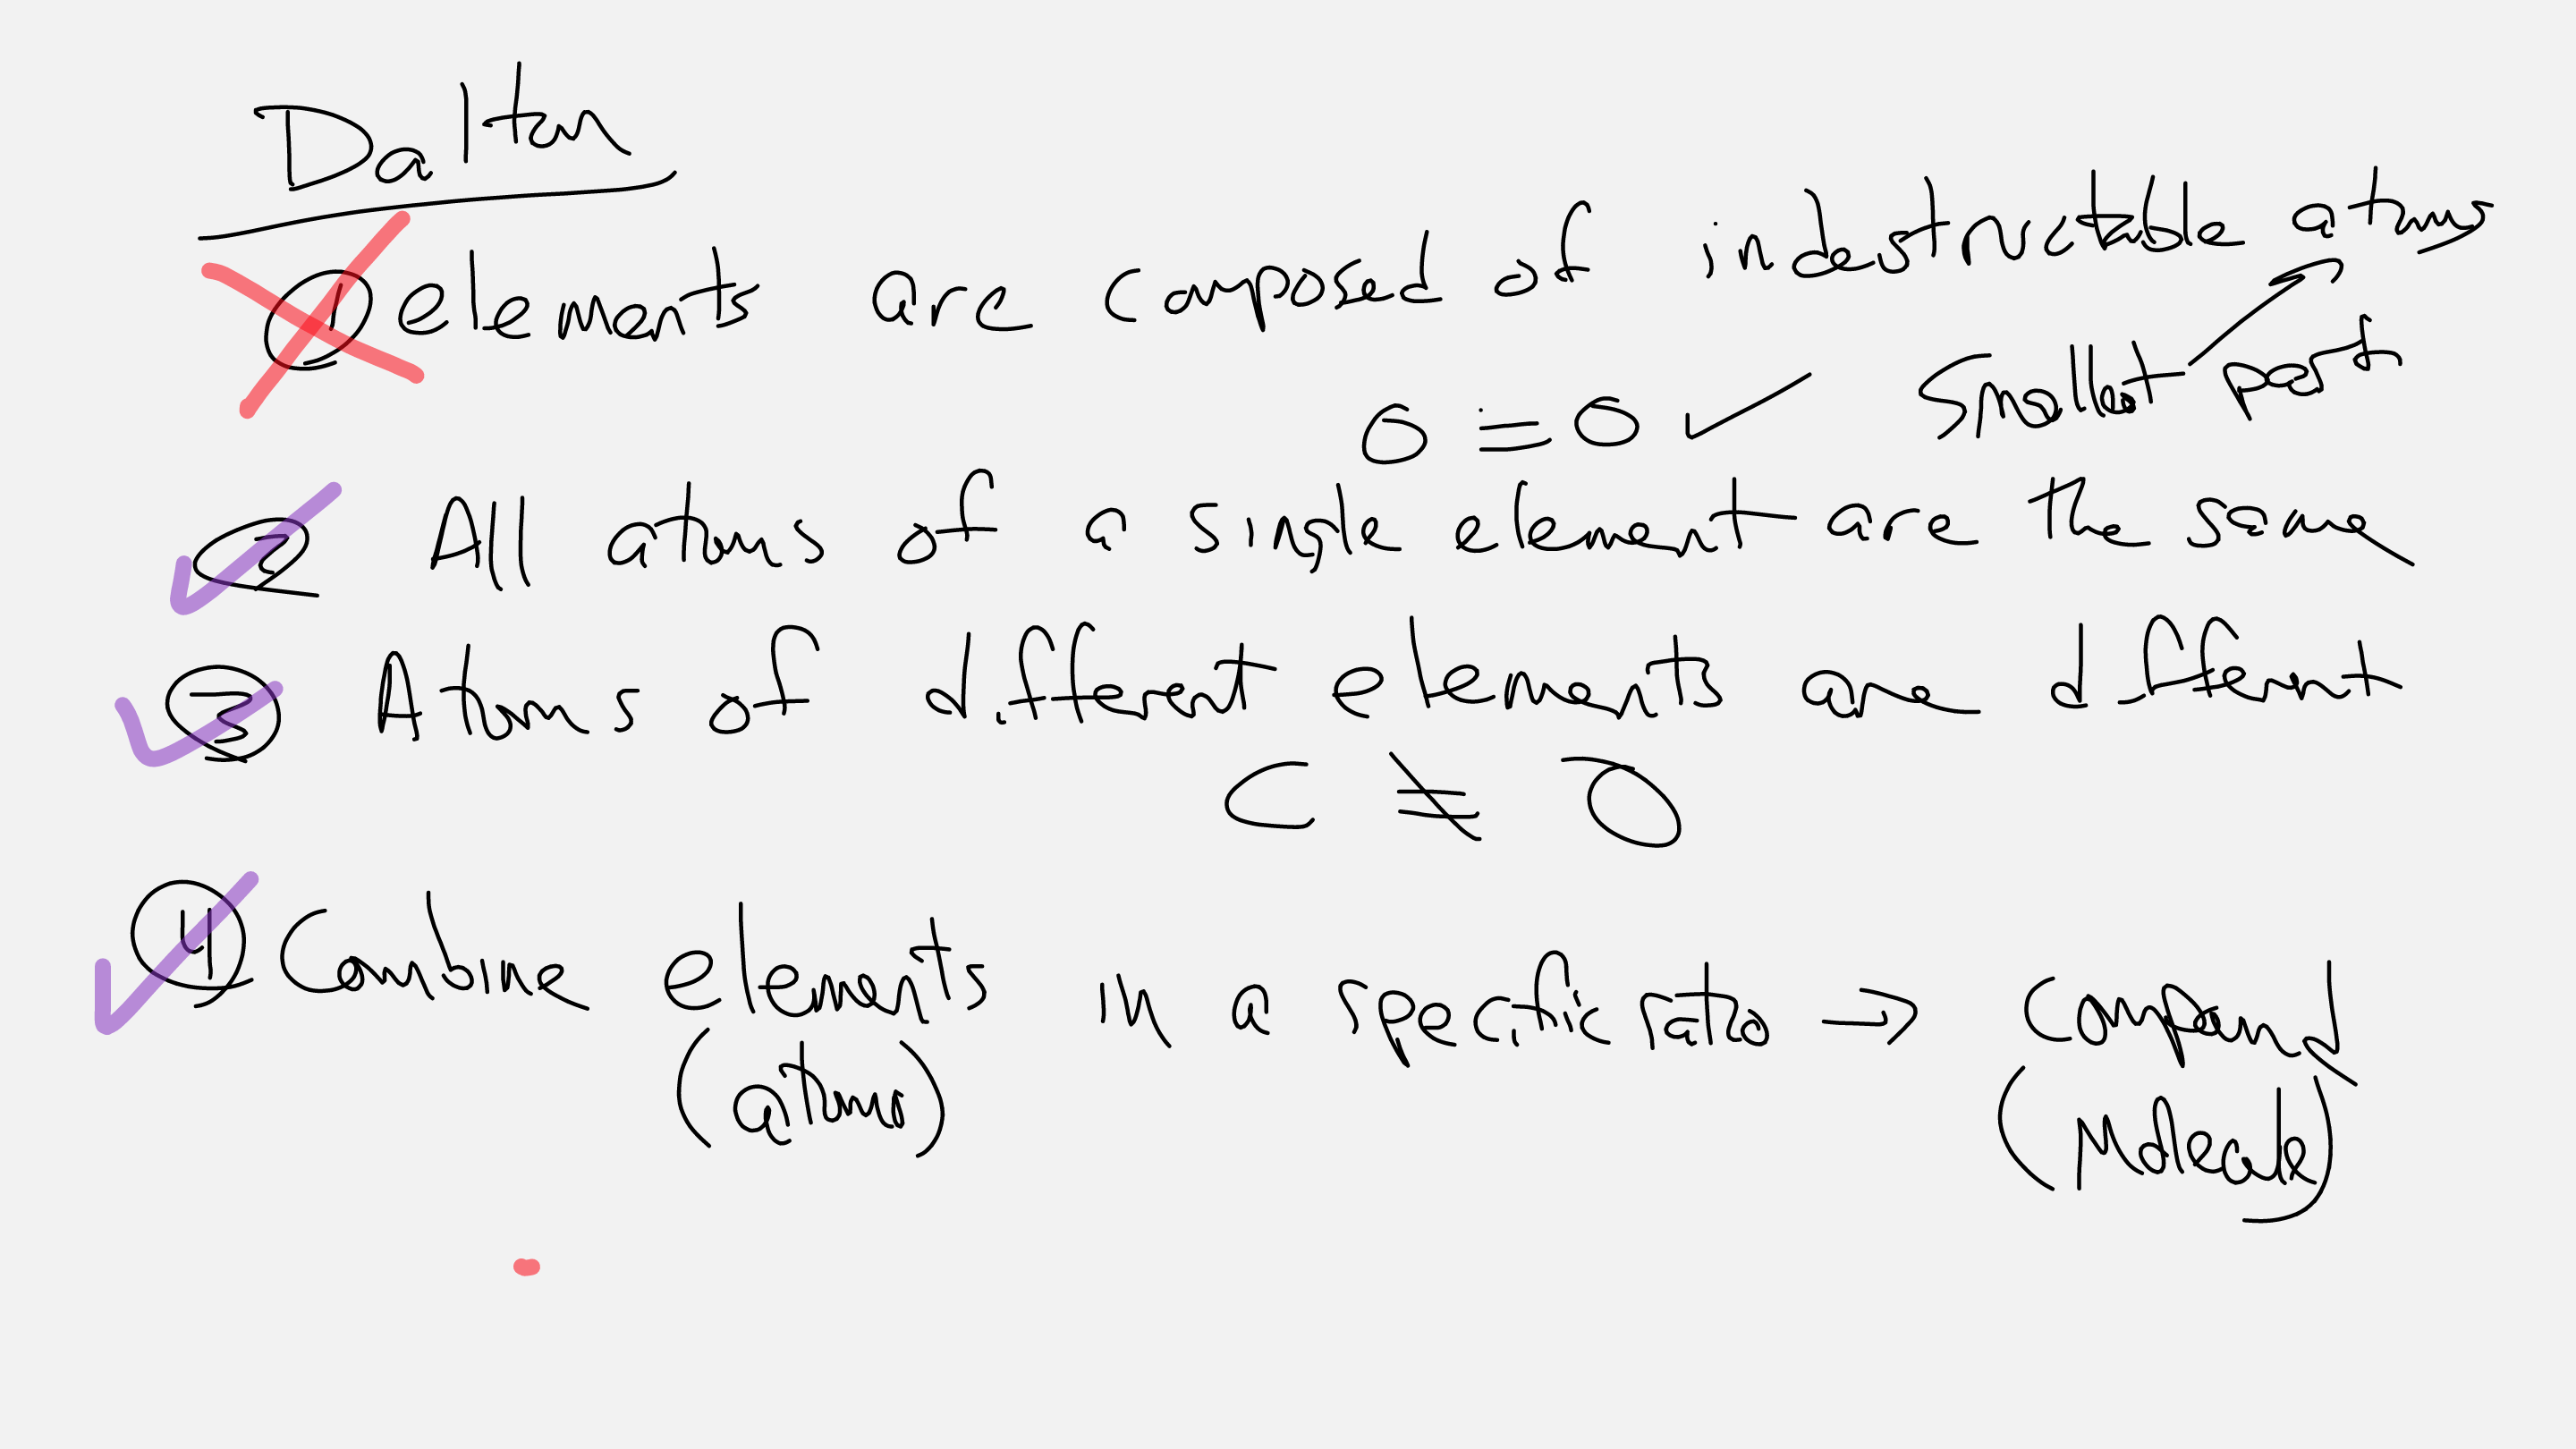 Dalton
① elements are composed of indestructable atoms
O = O ✓ Smallest part
② All atoms of a single element are the same
③ Atoms of different elements are different
C ≠ O
④ Combine elements in a specific ratio → compound
(atoms) (Molecule)